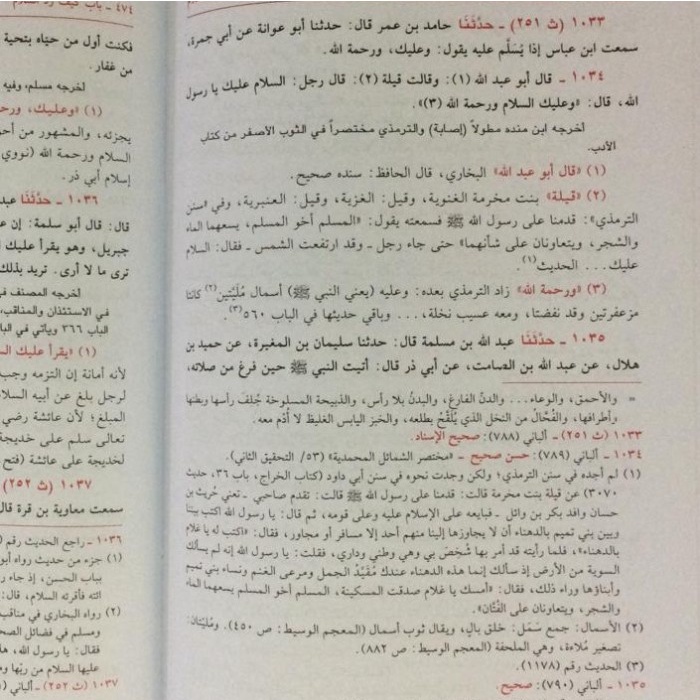 ١٠٣٣ (ث ٢٥١) ـ حدَّثَنَا حامد بن عمر قال: حدثنا أبو عوانة عن أبي جمرة،
سمعت ابن عباس إذا يُسَلَّم عليه يقول: وعليك، ورحمة الله.
١٠٣٤ ـ قال أبو عبد الله (١): وقالت قيلة (٢): قال رجل: السلام عليك يا رسول
الله، قال: «وعليك السلام ورحمة الله (٣)».
أخرجه ابن منده مطولاً (إصابة) والترمذي مختصراً في الثوب الأصفر من كتاب
الأدب.
(١) «قال أبو عبد الله» البخاري، قال الحافظ: سنده صحيح.
(٢) «قيلة» بنت مخرمة الغنوية، وقيل: الغزية، وقيل: العنبرية، وفي «سنن
الترمذي»: قدمنا على رسول الله ﷺ فسمعته يقول: «المسلم أخو المسلم، يسعهما الماء
والشجر، ويتعاونان على شأنهما» حتى جاء رجل ـ وقد ارتفعت الشمس ـ فقال: السلام
عليك... الحديث(١).
(٣) «ورحمة الله» زاد الترمذي بعده: وعليه (يعني النبي ﷺ) أسمال مُلَيَّتين(٢) كانتا
مزعفرتين وقد نفضتا، ومعه عسيب نخلة،... وباقي حديثها في الباب ٥٦٠(٣).
١٠٣٥ ـ حدَّثَنَا عبد الله بن مسلمة قال: حدثنا سليمان بن المغيرة، عن حميد بن
هلال، عن عبد الله بن الصامت، عن أبي ذر قال: أتيت النبي ﷺ حين فرغ من صلاته،
= والأحمق، والوعاء... والدنّ الفارغ، والبدنُ بلا رأس، والذبيحة المسلوخة جُلفَ رأسها وبطنها
وأطرافها، والفُحَّال من النخل الذي يُلْقَحُ بطلعه، والخبز اليابس الغليظ لا أُدْم معه.
١٠٣٣ (ث ٢٥١) ـ ألباني (٧٨٨): صحيح الإسناد.
١٠٣٤ ـ ألباني (٧٨٩): حسن صحيح ـ «مختصر الشمائل المحمدية» (٥٣/ التحقيق الثاني).
(١) لم أجده في سنن الترمذي؛ ولكن وجدت نحوه في سنن أبي داود (كتاب الخراج، باب ٣٦، حديث
٣٠٧٠) عن قيلة بنت مخرمة قالت: قدمنا على رسول الله ﷺ قالت: تقدم صاحبي ـ تعني حُريث بن
حسان وافد بكر بن وائل ـ فبايعه على الإسلام عليه وعلى قومه، ثم قال: يا رسول الله اكتب بيننا
وبين بني تميم بالدهناء أن لا يجاوزها إلينا منهم أحد إلا مسافر أو مجاور، فقال: «اكتب له يا غلام
بالدهناء»، فلما رأيته قد أمر بها شُخِصَ بي وهي وطني وداري، فقلت: يا رسول الله إنه لم يسألك
السوية من الأرض إذ سألك إنما هذه الدهناء عندك مُقَيَّدُ الجمل ومرعى الغنم ونساء بني تميم
وأبناؤها وراء ذلك، فقال: «أمسك يا غلام صدقت المسكينة، المسلم أخو المسلم يسعهما الماء
والشجر، ويتعاونان على الفَتَّان».
(٢) الأسمال: جمع سَمَل: خلق بالٍ، ويقال ثوب أسمال (المعجم الوسيط: ص ٤٥٠). ومُليَتان:
تصغير مُلاءة، وهي الملحفة (المعجم الوسيط: ص ٨٨٢).
(٣) الحديث رقم (١١٧٨).
١٠٣٥ ـ ألباني (٧٩٠): صحيح.
فكنت أول من حيّاه بتحية
من غفار.
أخرجه مسلم، وفيه
(١) «وعليك، ورحمة
يجزئه، والمشهور من
السلام ورحمة الله (نووي
إسلام أبي ذر.
١٠٣٦ ـ حدَّثَنَا
قال: قال أبو سلمة: إن
جبريل، وهو يقرأ عليك
ترى ما لا أرى. تريد بذلك
أخرجه المصنف
في الاستئذان والمناقب،
الباب ٣٦٦ ويأتي في
(١) «يقرأ عليك
لأنه أمانة إن التزمه وجب
لرجل بلغ عن أبيه
المبلغ؛ لأن عائشة رضي
تعالى سلم على خديجة
لخديجة على عائشة (فتح
١٠٣٧ (ث ٢٥٢)
سمعت معاوية بن قرة
١٠٣٦ ـ راجع الحديث رقم
(١) جزء من حديث رواه
بباب الحسن، إذ جاء
ائته فأقرئه السلام،
(٢) رواه البخاري في
ومسلم في فضائل
فقال: يا رسول الله،
عليها السلام من ربها
١٠٣٧ (ث ٢٥٢) ـ ألباني